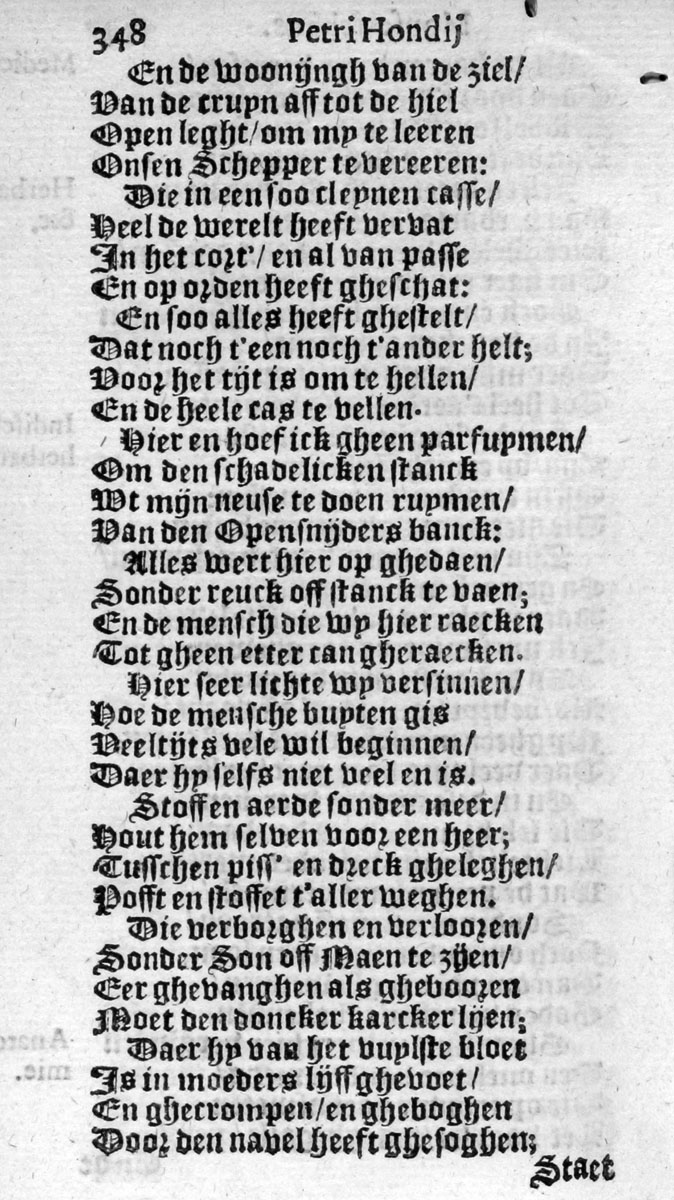 348 Petri Hondij
En de woonijngh van de ziel/
Van de cruyn aff tot de hiel
Open leght/om my te leeren
Onsen Schepper te vereeren:
Die in een soo cleynen casse/
Heel de werelt heeft vervat
In het cort'/ en al van passe
En op orden heeft gheschat:
En soo alles heeft ghestelt/
Dat noch t'een noch t'ander helt;
Voor het tijt is om te hellen/
En de heele cas te vellen.
Hier en hoef ick gheen parfuymen/
Om den schadelicken stanck
Wt mijn neuse te doen ruymen/
Van den Opensnijders banck:
Alles wert hier op ghedaen/
Sonder reuck off stanck te vaen;
En de mensch die wy hier raecken
Tot gheen etter can gheraecken.
Hier seer lichte wy versinnen/
Hoe de mensche buyten gis
Veeltijts vele wil beginnen/
Daer hy selfs niet veel en is.
Stoff en aerde sonder meer/
Hout hem selven voor een heer;
Tusschen piss' en dreck gheleghen/
Pofft en stoffet t'aller weghen.
Die verborghen en verlooren/
Sonder Son off Maen te zijen/
Eer ghevanghen als ghebooren
Moet den doncker karcker lijen;
Daer hy van het vuylste bloet
Is in moeders lijff ghevoet/
En ghecrompen/en gheboghen
Door den navel heeft ghesoghen;
Staet